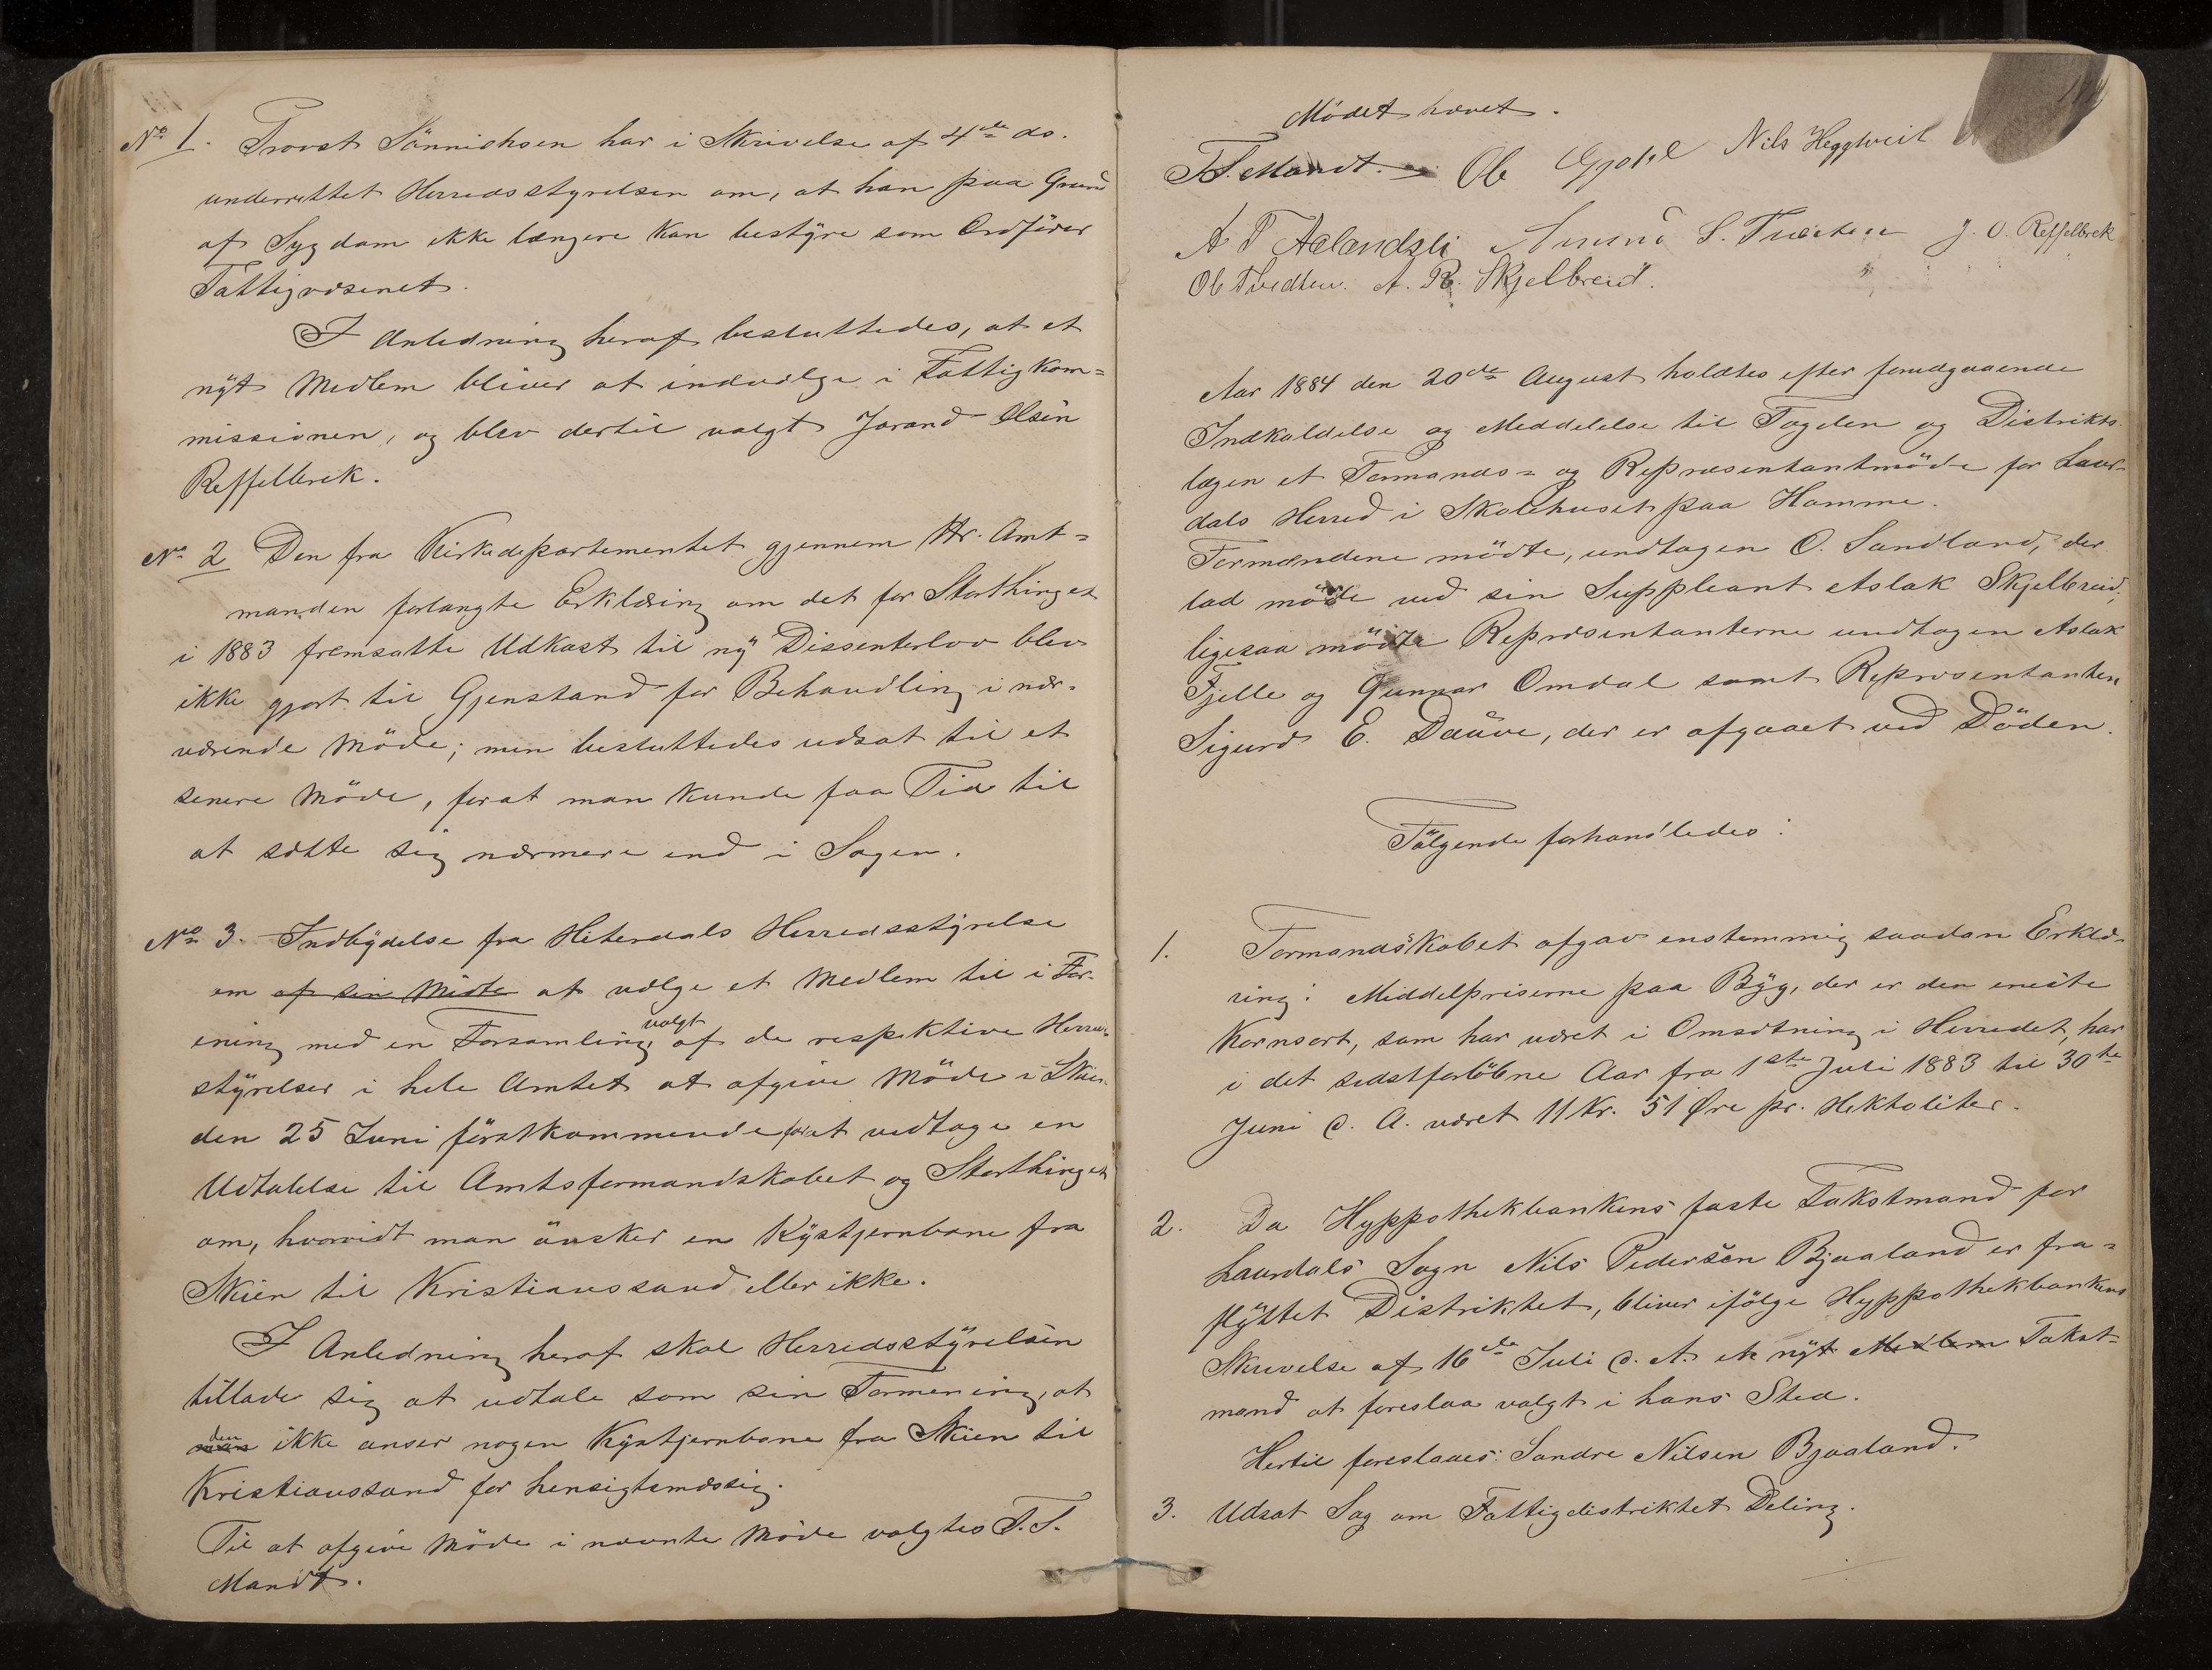 No 1. Provst Sönnichsen har i Skrivelse af 4de ds.
underrettet Herredsstyrelsen om, at han paa Grund
af Sygdom ikke længere kan bestyre som Ordfører
Fattigvæsenet.
I Anledning heraf besluttedes, at et
nyt Medlem bliver at indvælge i Fattigkom=
missionen, og blev dertil valgt Jorand Olsen
Reffelbrek.
No 2 Den fra Kirkedepartementet gjennem Hr. Amt=
manden forlangte Erklæring om det for Storthinget
i 1883 fremsatte Udkast til ny Dissenterlov blev
ikke gjort til Gjenstand for Behandling i nær=
værende Möde; men besluttedes udsat til et
senere Möde, forat man kunde faa Tid til
at sætte sig nærmere ind i Sagen.
No 3. Indbydelse fra Hiterdals Herredsstyrelse
om af sin Midte at vælge et Medlem til i For-
ening med en Forsamling, valgt af de respektive Herreds-
styrelser i hele Amtet at afgive Möde i Skien
den 25 Juni förstkommende forat vedtage en
Udtalelse til Amtsformandskabet og Storthinget
om, hvorvidt man önsker en Kystjernbane fra
Skien til Kristianssand eller ikke.
I Anledning heraf skal Herredsstyrelsen
tillade sig at udtale som sin Formening, at
man den ikke anser nogen Kystjernbane fra Skien til
Kristianssand for hensigtsmæssig.
Til at afgive Möde i nævnte Möde valgtes T. S.
Mandt.
Mödet hævet.
T. S. Mandt. Ole Gjötil Nils Heggtveit
A T Aelandsli Amund S. Tveiten J. O. Reffelbrek
Ole Tvedten. A. R. Skjelbreid.
Aar 1884 den 20de August holdtes efter forudgaaende
Indkaldelse og Meddelelse til Fogden og Distrikts-
lægen et Formands= og Repræsentantmöde for Laur-
dals Herred i Skolehuset paa Hamme.
Formændene mödte, undtagen O. Sandland, der
lod möde ved sin Suppleant Aslak Skjelbreid;
ligesaa mödte Repræsentanterne undtagen Aslak
Fjelle og Gunnar Omdal samt Repræsentanten
Sigurd E. Daave, der er afgaaet ved Döden.
Fölgende forhandledes:
1. Formandskabet afgav enstemmig saadan Erklæ-
ring: Middelpriserne paa Byg, der er den eneste
Kornsort, som har været i Omsætning i Herredet, har
i det sidstforlöbne Aar fra 1ste Juli 1883 til 30te
Juni d. A. været 11 Kr. 51 Øre pr. Hektoliter.
2. Da Hyppothekbankens faste Takstmand for
Laurdals Sogn Nils Pedersen Bjaaland er fra=
flyttet Distriktet, bliver ifölge Hyppothekbankens
Skrivelse af 16de Juli d. A. et nyt Medlem Takst-
mand at foreslaa valgt i hans Sted.
Hertil foreslaaes: Sondre Nilsen Bjaaland.
3. Udsat Sag om Fattigdistriktets Deling.